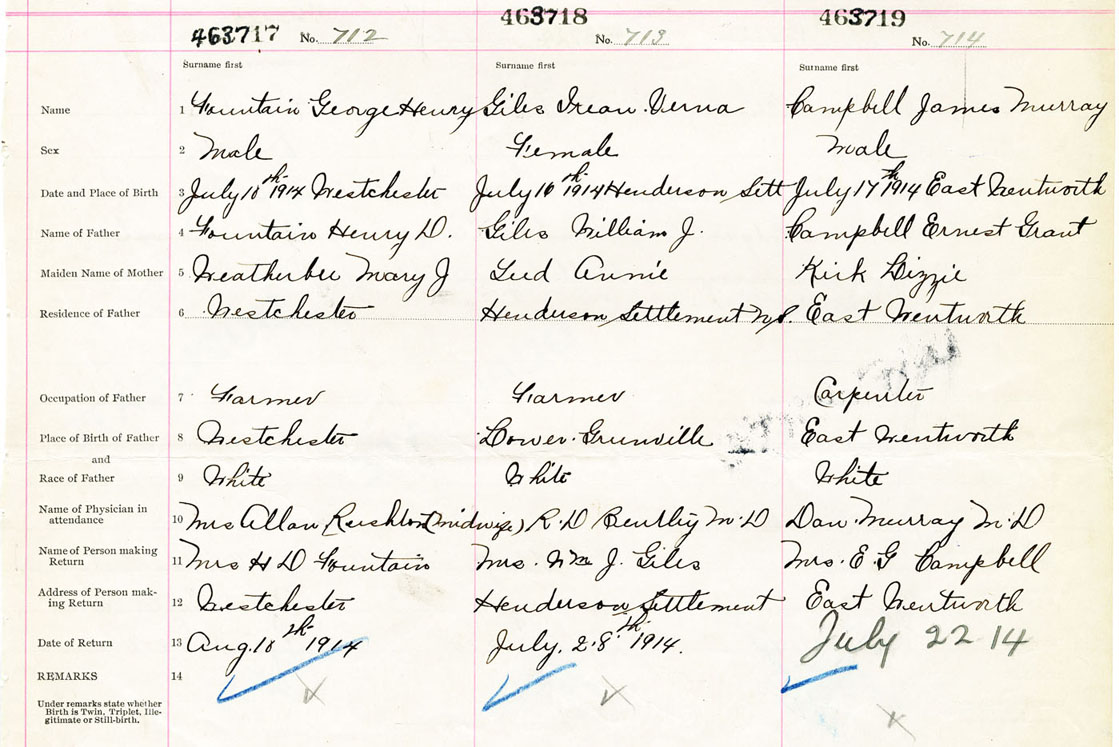 463717 No. 712 463718 No. 713 463719 No. 714
Surname first Surname first Surname first
Name 1 Fountain George Henry Giles Irean Verna Campbell James Murray
Sex 2 Male Female Male
Date and Place of Birth 3 July 10th 1914 Westchester July 16th 1914 Henderson Sett July 17th 1914 East Wentworth
Name of Father 4 Fountain Henry D. Giles William J. Campbell Ernest Grant
Maiden Name of Mother 5 Weatherbee Mary J Annie Kirk Lizzie
Residence of Father 6 Westchester Henderson Settlement East Wentworth
Occupation of Father 7 Farmer Farmer Carpenter
Place of Birth of Father 8 Westchester Lower Grenville East Wentworth
and
Race of Father 9 White White White
Name of Physician in
attendance 10 Mrs Allan Rushton (midwife) R. D Bentley M.D Dan Murray M.D
Name of Person making
Return 11 Mrs H D Fountain Mrs. Wm J. Giles Mrs. E. G Campbell
Address of Person mak-
ing Return 12 Westchester Henderson Settlement East Wentworth
Date of Return 13 Aug. 10th 1914 July. 28th 1914. July 22 14
REMARKS 14
Under remarks state whether
Birth is Twin, Triplet, Ille-
gitimate or Still-birth.